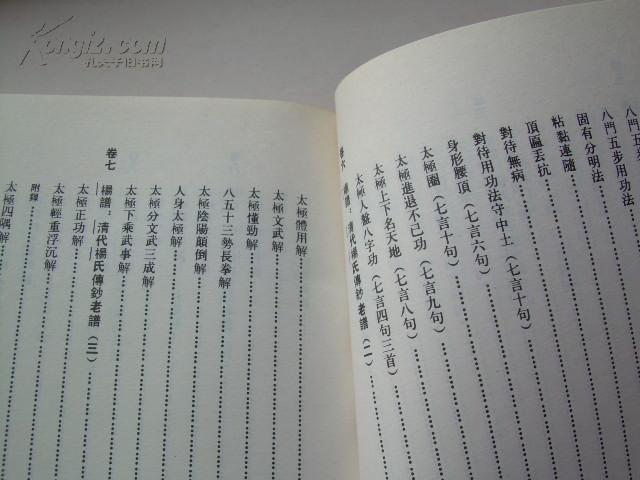 八門五步
八門五步用功法
固有分明法
粘黏連隨
頂匾丟抗
對待無病
對待用功法守中土（七言十句）
身形腰頂（七言六句）
太極圈（七言十句）
太極進退不已功（七言九句）
太極上下名天地（七言八句）
太極人盤八字功（七言四句三首）
卷六 楊譜：清代楊氏傳鈔老譜（二）
太極體用解
太極文武解
太極懂勁解
八五十三勢長拳解
太極陰陽顛倒解
人身太極解
太極分文武三成解
太極下乘武事解
卷七 楊譜：清代楊氏傳鈔老譜（三）
太極正功解
太極輕重浮沉解
附釋
太極四隅解
Kongfz.com
孔夫子旧书网